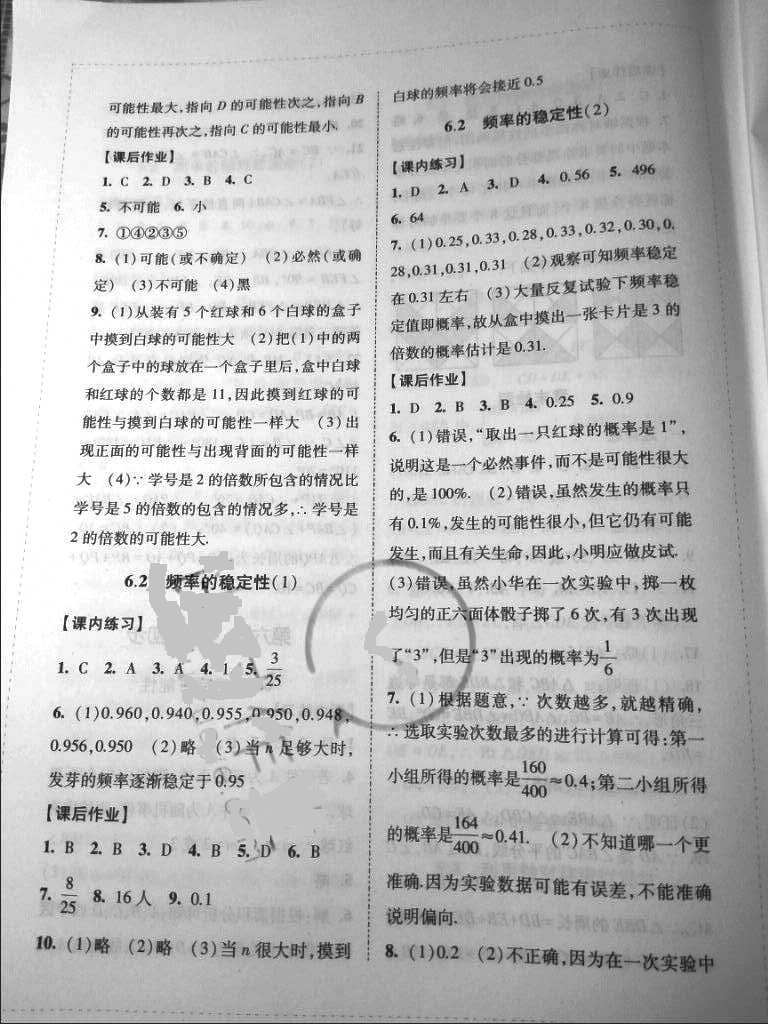 可能性最大,指向 D 的可能性次之,指向 B
的可能性再次之,指向 C 的可能性最小.
【课后作业】
1. C 2. D 3. B 4. C
5. 不可能 6. 小
7. ①④②③⑤
8. (1)可能(或不确定) (2)必然(或确
定) (3)不可能 (4)黑
9. (1)从装有 5 个红球和 6 个白球的盒子
中摸到白球的可能性大 (2)把(1)中的两
个盒子中的球放在一个盒子里后,盒中白球
和红球的个数都是 11,因此摸到红球的可
能性与摸到白球的可能性一样大 (3)出
现正面的可能性与出现背面的可能性一样
大 (4)∵学号是 2 的倍数所包含的情况比
学号是 5 的倍数的包含的情况多,∴学号是
2 的倍数的可能性大.
6.2 频率的稳定性(1)
【课内练习】
1. C 2. A 3. A 4. 1 5. 3/25
6. (1)0.960,0.940,0.955,0.950,0.948,
0.956,0.950 (2)略 (3)当 n 足够大时,
发芽的频率逐渐稳定于 0.95
【课后作业】
1. B 2. B 3. D 4. B 5. D 6. B
7. 8/25 8. 16 人 9. 0.1
10. (1)略 (2)略 (3)当 n 很大时,摸到
白球的频率将会接近 0.5
6.2 频率的稳定性(2)
【课内练习】
1. D 2. A 3. D 4. 0.56 5. 496
6. 64
7. (1)0.25,0.33,0.28,0.33,0.32,0.30,0.
28,0.31,0.31,0.31 (2)观察可知频率稳定
在 0.31 左右 (3)大量反复试验下频率稳
定值即概率,故从盒中摸出一张卡片是 3 的
倍数的概率估计是 0.31.
【课后作业】
1. D 2. B 3. B 4. 0.25 5. 0.9
6. (1)错误,“取出一只红球的概率是 1”,
说明这是一个必然事件,而不是可能性很大
的,是 100%. (2)错误,虽然发生的概率只
有 0.1%,发生的可能性很小,但它仍有可能
发生,而且有关生命,因此,小明应做皮试.
(3)错误,虽然小华在一次实验中,掷一枚
均匀的正六面体骰子掷了 6 次,有 3 次出现
了“3”,但是“3”出现的概率为 1/6
7. (1)根据题意,∵次数越多,就越精确,
∴选取实验次数最多的进行计算可得:第一
小组所得的概率是 160/400≈0.4;第二小组所得
的概率是 164/400≈0.41. (2)不知道哪一个更
准确.因为实验数据可能有误差,不能准确
说明偏向.
8. (1)0.2 (2)不正确,因为在一次实验中